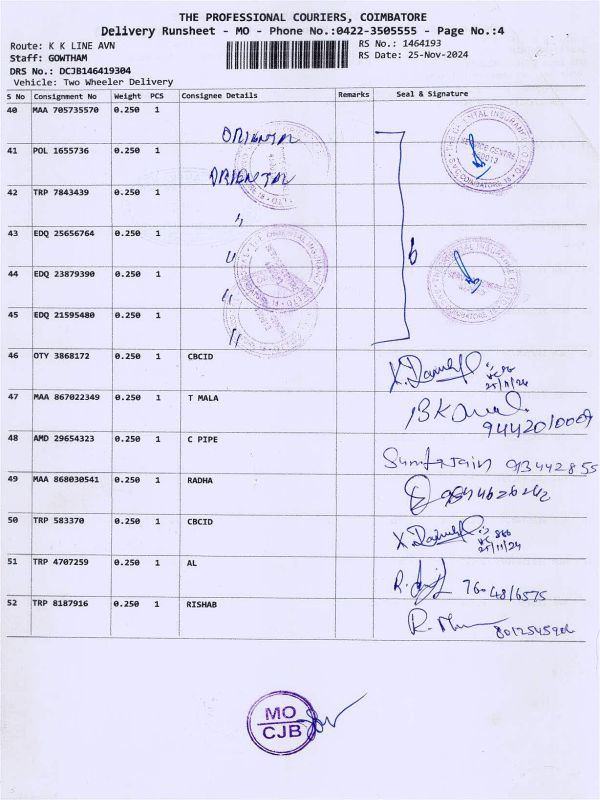 THE PROFESSIONAL COURIERS, COIMBATORE
Delivery Runsheet - MO - Phone No.:0422-3505555 - Page No.:4
Route: K K LINE AVN RS No.: 1464193
Staff: GOWTHAM RS Date: 25-Nov-2024
DRS No.: DCJB146419304
Vehicle: Two Wheeler Delivery
S No Consignment No Weight PCS Consignee Details Remarks Seal & Signature
40 MAA 705735570 0.250 1 ORIENTAL
41 POL 1655736 0.250 1 ORIENTAL
42 TRP 7843439 0.250 1 "
43 EDQ 25656764 0.250 1 " 6
44 EDQ 23879390 0.250 1 "
45 EDQ 21595480 0.250 1 "
46 OTY 3868172 0.250 1 CBCID
47 MAA 867022349 0.250 1 T MALA
48 AMD 29654323 0.250 1 C PIPE 913442855
49 MAA 868030541 0.250 1 RADHA
50 TRP 583370 0.250 1 CBCID
51 TRP 4707259 0.250 1 AL
52 TRP 8187916 0.250 1 RISHAB
MO
CJB